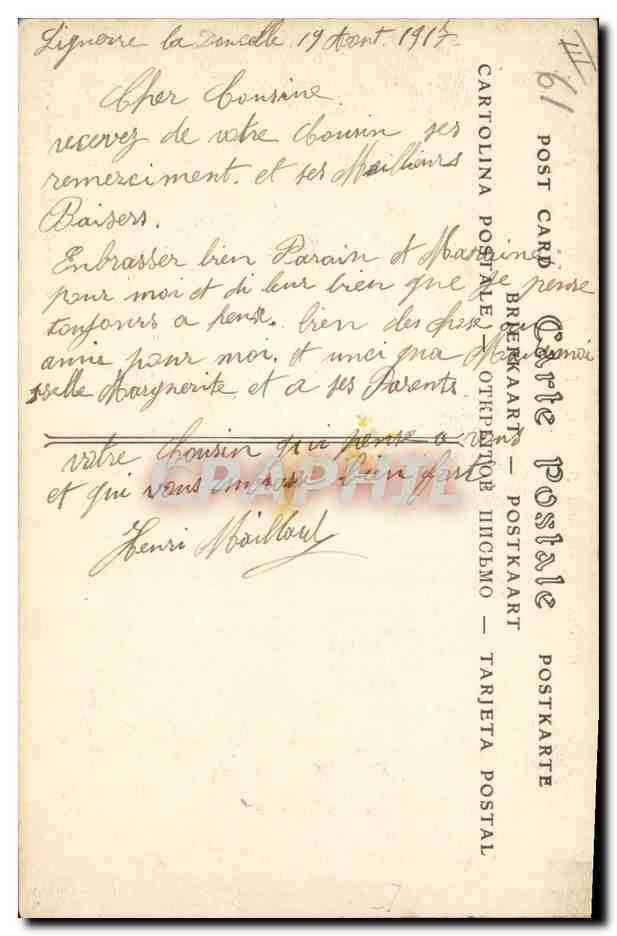 Lignerre la 19 Aout. 1917.
Cher Cousine
recevez de votre Cousin ses
remerciment. et ses Meillieurs
Baisers.
Enbrasser bien Parain et Marraine
pour moi et di leur bien que je pense
toujours a heuse. bien des chose au
amie pour moi. et
selle Marguerite et a ses Parents.
votre Cousin qui pense a vous
et qui vous embrasse bien fort
Henri Maillard
III
61
POST CARD Carte Postale POSTKARTE
BRIEFKAART — POSTKAART
CARTOLINA POSTALE — ОТКРЫТОЕ ПИСЬМО — TARJETA POSTAL
CPAPHIL